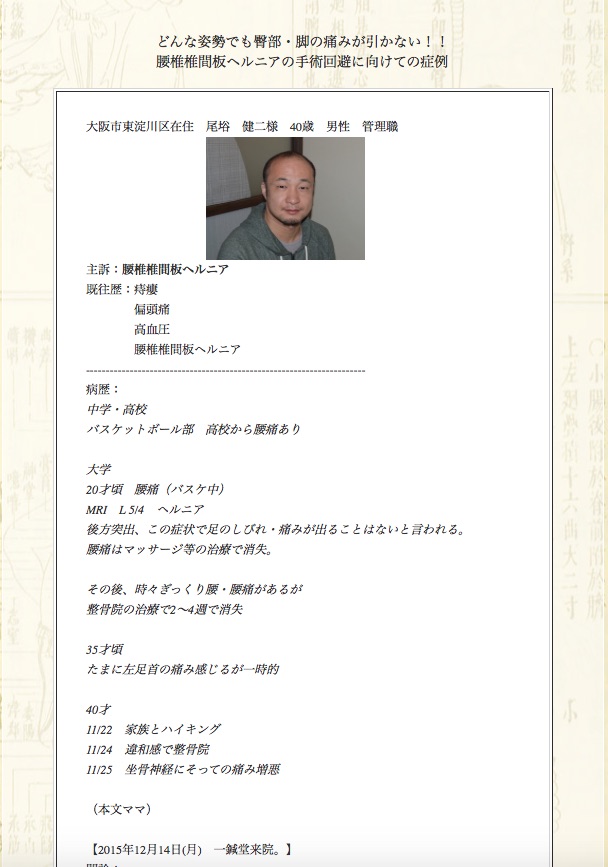 どんな姿勢でも臀部・脚の痛みが引かない！！
腰椎椎間板ヘルニアの手術回避に向けての症例
大阪市東淀川区在住　尾塔　健二様　40歳　男性　管理職
主訴：腰椎椎間板ヘルニア
既往歴：痔瘻
偏頭痛
高血圧
腰椎椎間板ヘルニア
----------------------------------------------------------------------
病歴：
中学・高校
バスケットボール部　高校から腰痛あり
大学
20才頃　腰痛（バスケ中）
MRI　L 5/4　ヘルニア
後方突出、この症状で足のしびれ・痛みが出ることはないと言われる。
腰痛はマッサージ等の治療で消失。
その後、時々ぎっくり腰・腰痛があるが
整骨院の治療で2～4週で消失
35才頃
たまに左足首の痛み感じるが一時的
40才
11/22　家族とハイキング
11/24　違和感で整骨院
11/25　坐骨神経にそっての痛み増悪
（本文ママ）
【2015年12月14日(月)　一鍼堂来院。】